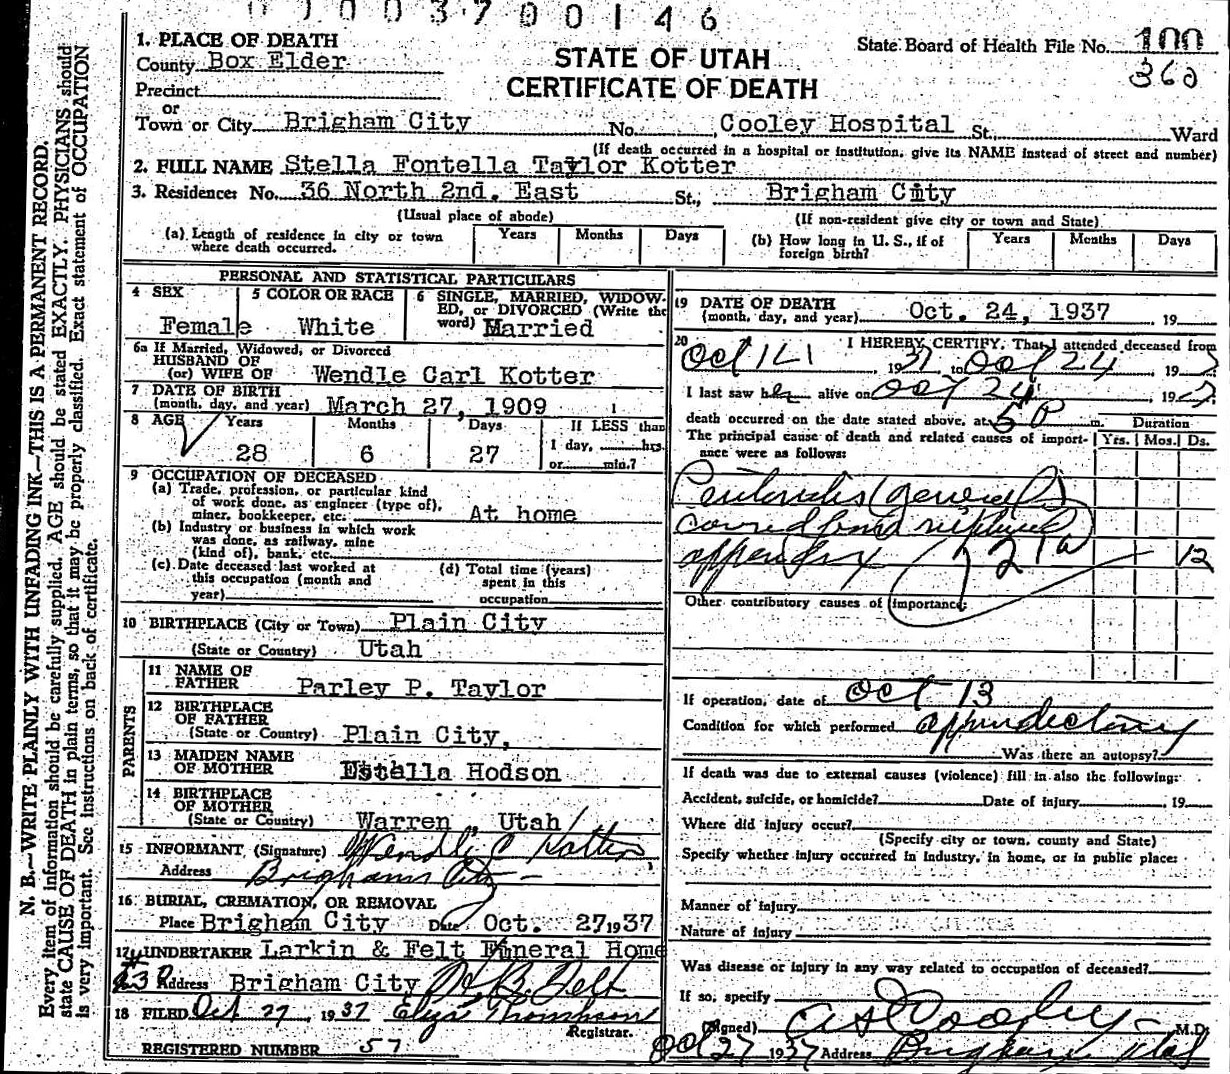 0 0 0 3 7 0 0 1 4 6
1. PLACE OF DEATH
County Box Elder
Precinct
or
Town or City Brigham City No. Cooley Hospital St. Ward
(If death occurred in a hospital or institution, give its NAME instead of street and number)
STATE OF UTAH
CERTIFICATE OF DEATH
State Board of Health File No. 100
360
2. FULL NAME Stella Fontella Taylor Kotter
3. Residence: No. 36 North 2nd. East St., Brigham City
(Usual place of abode) (If non-resident give city or town and State)
(a) Length of residence in city or town where death occurred. Years Months Days
(b) How long in U. S., if of foreign birth? Years Months Days
PERSONAL AND STATISTICAL PARTICULARS
4 SEX Female
5 COLOR OR RACE White
6 SINGLE, MARRIED, WIDOWED, or DIVORCED (Write the word) Married
6a If Married, Widowed, or Divorced
HUSBAND OF
(or) WIFE OF Wendle Carl Kotter
7 DATE OF BIRTH
(month, day, and year) March 27, 1909
8 AGE Years Months Days If LESS than
28 6 27 1 day, hrs.
or min.?
9 OCCUPATION OF DECEASED
(a) Trade, profession, or particular kind
of work done, as engineer (type of),
miner, bookkeeper, etc. At home
(b) Industry or business in which work
was done, as railway, mine
(kind of), bank, etc.
(c) Date deceased last worked at
this occupation (month and
year)
(d) Total time (years)
spent in this
occupation
10 BIRTHPLACE (City or Town) Plain City
(State or Country) Utah
PARENTS
11 NAME OF
FATHER Parley P. Taylor
12 BIRTHPLACE
OF FATHER
(State or Country) Plain City,
13 MAIDEN NAME
OF MOTHER Estella Hodson
14 BIRTHPLACE
OF MOTHER
(State or Country) Warren, Utah
15 INFORMANT (Signature) Wendle C Kotter
Address Brigham City
16 BURIAL, CREMATION, OR REMOVAL
Place Brigham City Date Oct. 27 1937
17 UNDERTAKER Larkin & Felt Funeral Home
Address Brigham City
18 FILED Oct 27, 1937
Registrar.
REGISTERED NUMBER 57
19 DATE OF DEATH
(month, day, and year) Oct. 24, 1937 19
20 I HEREBY CERTIFY, That I attended deceased from
Oct 1937 to Oct 24, 1937
I last saw her alive on Oct 24, 1937
death occurred on the date stated above, at 5 P m.
Duration
The principal cause of death and related causes of importance were as follows: Yrs. Mos. Ds.
Peritonitis (general)
ruptured
appendix 121a 12
Other contributory causes of importance:
If operation, date of Oct 13
Condition for which performed appendectomy
Was there an autopsy?
If death was due to external causes (violence) fill in also the following:
Accident, suicide, or homicide? Date of injury , 19
Where did injury occur?
(Specify city or town, county and State)
Specify whether injury occurred in industry, in home, or in public place:
Manner of injury
Nature of injury
Was disease or injury in any way related to occupation of deceased?
If so, specify
(Signed) Cooley M.D.
Oct 27 1937 Address Brigham Utah
N. B.—WRITE PLAINLY WITH UNFADING INK—THIS IS A PERMANENT RECORD.
Every item of information should be carefully supplied. AGE should be stated EXACTLY. PHYSICIANS should
state CAUSE OF DEATH in plain terms, so that it may be properly classified. Exact statement of OCCUPATION
is very important. See instructions on back of certificate.